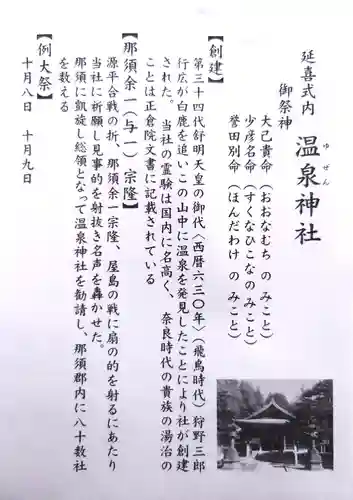 延喜式内 温泉神社
ゆぜん
御祭神
大己貴命(おおなむち のみこと)
少彦名命(すくなひこなのみこと)
誉田別命(ほんだわけ のみこと)
【創建】
第三十四代舒明天皇の御代(西暦六三〇年)(飛鳥時代)狩野三郎
行広が白鹿を追いこの山中に温泉を発見したことにより社が創建
された。 当社の霊験は国内に名高く、奈良時代の貴族の湯治の
ことは正倉院文書に記載されている
【那須余一(与一)宗隆】
源平合戦の折、那須余一宗隆、屋島の戦に扇の的を射るにあたり
当社に祈願し見事的を射抜き名声を轟かせた。
那須に凱旋し総領となって温泉神社を勧請し、那須郡内に八十数社
を数える
【例大祭】
十月八日 十月九日